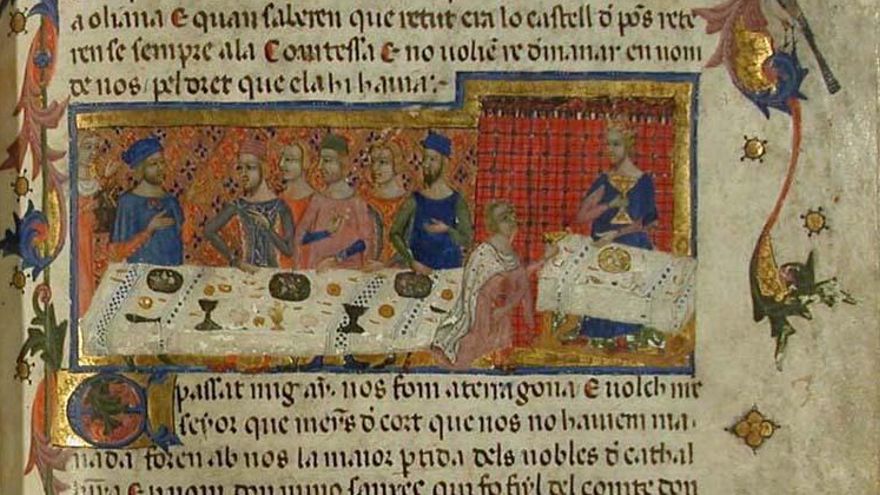 a oliana E quan saberen que retut era lo castell d̄ pōs rete
ren se sempre ala Comtessa E no voliē re d̄manar en nom
de nos pel dret que ela hi havia :
passat mig aȳ. nos fom aterragona E volch nr̄e
seȳor que mēs d̄ cort que nos no haviem ma
nada foren ab nos la maior ꝑtida dels nobles d̄ cathal
E don nuno qui fo fiyl del comte don